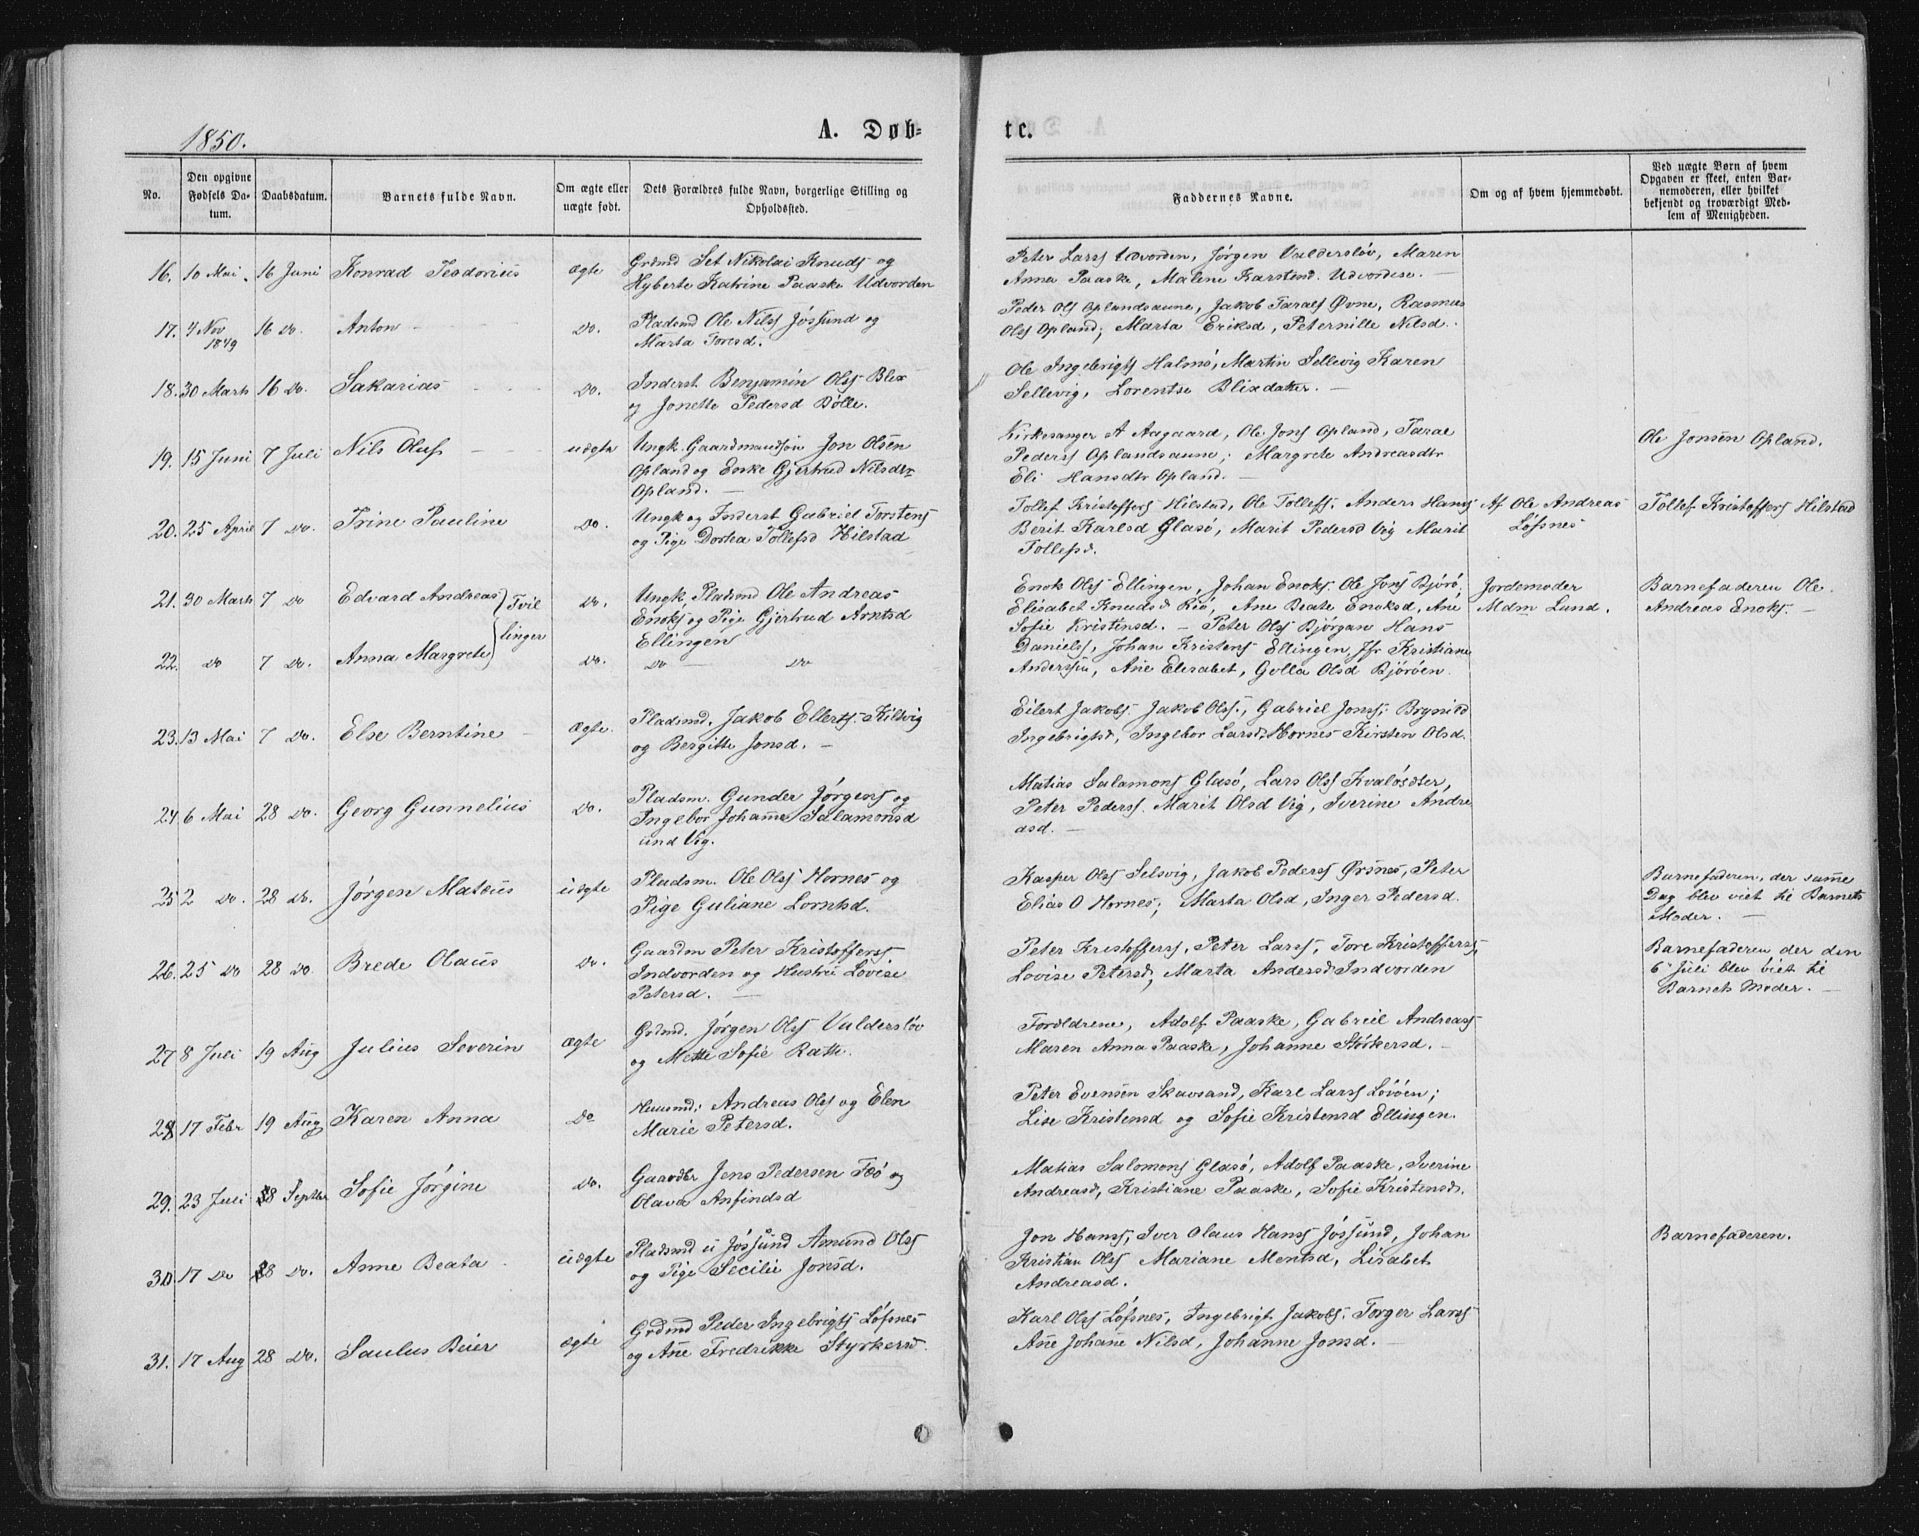 1850.
A. Døb-
te.
No.
Den opgivne
Fødsels Da-
tum.
Daabsdatum.
Barnets fulde Navn.
Om ægte eller
uægte født.
Dets Forældres fulde Navn, borgerlige Stilling og
Opholdssted.
Faddernes Navne.
Om og af hvem hjemmedøbt.
Ved uægte Børn af hvem
Opgaven er skeet, enten Bar-
nemoderen, eller hvilket
bekjendt og troværdigt Med-
lem af Menigheden.
16. 10 Mai 16 Juni Konrad Teodorius ægte
Grdmd Set Nikolai Knuds og
Hyberte Katrine Paaske Udvorden
Peter Larss Udvorden, Jørgen Valdersløv, Maren
Anna Paaske, Malene Karstensd. Udvordese. —
17. 4 Nov 1849 16 Do. Anton Do.
Pladsmd Ole Nilss Jøssund og
Marta Toresd.
Peder Ols Oplandsaune, Jakob Taralss Øvne, Rasmus
Olss Opland; Marta Eriksd, Peternille Nilsd.
18. 30 Marts 16 Do. Sakarias Do.
Inderst Benjamin Olss Blix
og Jonette Pedersd Bølle.
Ole Ingebrigts Halmø, Martin Sellevig Karen
Sellevig, Lorentse Blixdatter. —
19. 15 Juni 7 Juli Nils Oluf uægte
Ungk. Gaardmandssøn Jon Olsen
Opland og Enke Gjertrud Nilsdtr
Opland. —
Kirkesanger A Aagaard, Ole Jons Opland, Taral
Peders Oplandsaune; Margrete Andreasdtr
Eli Hansdtr Opland. —
Ole Jonsen Opland.
20. 25 April 7 Do. Trine Pauline Do.
Ungk og Inderst Gabriel Torstens
og Pige Dortea Tollefsd Hilstad
Tollef Kristoffers Hilstad, Ole Tollefs, Anders Hans
Berit Karlsd Glasø, Marit Pedersd Vig Marit
Tollefsd.
Af Ole Andreas
Løfsnes
Tollef Kristoffers Hilstad
21. 30 Marts 7 Do Edvard Andreas Tvil
linger Do.
Ungk Pladsmd Ole Andreas
Enoks og Pige Gjertrud Arntsd
Ellingen
Enok Olss Ellingen, Johan Enoks. Ole Jons Bjørø,
Elisabet Knudsd Riø, Ane Beate Enoksd, Ane
Sofie Kristensd. — Peter Olss Bjørgan Hans
Jordemoder
Mdm Lund.
Barnefaderen Ole
Andreas Enoks. —
22. Do 7 Do. Anna Margrete Do. Do — Do
Daniels, Johan Kristens Ellingen, Jfr Kristiane
Anderssen, Ane Elisabet, Golla Olsd Bjørøen.
23. 13 Mai 7 Do. Else Berntine ægte.
Pladsmd. Jakob Ellerts. Kilvig
og Bergitte Jonsd. —
Eilert Jakobs. Jakob Olss., Gabriel Jonss, Brynild
Ingebrigtsd, Ingebor Larsd. Hornes Kirsten Olsd.
24. 6 Mai 28 Do. Georg Gunnelius Do.
Pladsm. Gunder Jørgens og
Ingebor Johanne Salamonsd
und Vig.
Matias Salamons Glasø, Lars Olss Kvaløsæter,
Peter Pederss. Marit Olsd Vig, Iverine Andre
asd. —
25 2 Do. 28 Do. Jørgen Mateus uægte
Pladsm. Ole Olss Hornes og
Pige Guliane Lorntsd.
Kasper Olss Selsvig, Jakob Peders Ørsnes, Peter
Elias O Hornes; Marta Olsd, Inger Pedersd.
Barnefaderen, der samme
Dag blev viet til Barnets
Moder. —
26. 25 Do 28 Do. Brede Olaus Do.
Gaardm Peter Kristofferss.
Indvorden og Hustru Lovise
Petersd. —
Peter Kristofferss, Peter Larss, Tore Kristofferss,
Lovise Petersd, Marta Andersd. Indvorden
Barnefaderen der den
6 Juli blev viet til
Barnets Moder. —
27 8 Juli 19 Aug Julius Severin ægte
Grdmd. Jørgen Olss Valdersløv
og Mette Sofie Rath.
Forældrene, Adolf Paaske, Gabriel Andreass
Maren Anna Paaske, Johanne Størkersd. —
28 17 Febr 19 Aug Karen Anna Do
Huusmd; Andreas Olss og Elen
Marie Petersd.
Peter Evensen Skavsand, Karl Larss Løvøen;
Lise Kristensd og Sofie Kristensd Ellingen.
29. 23 Juli 8 Septbr Sofie Jørgine Do.
Gaardbr Jens Pedersen Fæø og
Olava Anfindsd
Matias Salomons Glasø, Adolf Paaske, Iverine
Andreasd, Kristiane Paaske, Sofie Kristensd.
30. 17 Do 8 Do. Anne Beata uægte
Pladsmd u Jøssund Amund Olss
og Pige Secilie Jonsd.
Jon Hanss, Iver Olaus Hans Jøssund, Johan
Kristian Olss Mariane Mentsd, Lisabet
Andreasd.
Barnefaderen.
31. 17 Aug 28 Do. Saulus Beier ægte
Grdmd Peder Ingebrigts Løfsnes
og Ane Fredrikke Styrkersd.
Karl Olss Løfsnes, Ingebrigt Jakobs. Torger Larss
Ane Johane Nilsd, Johanne Jonsd. —